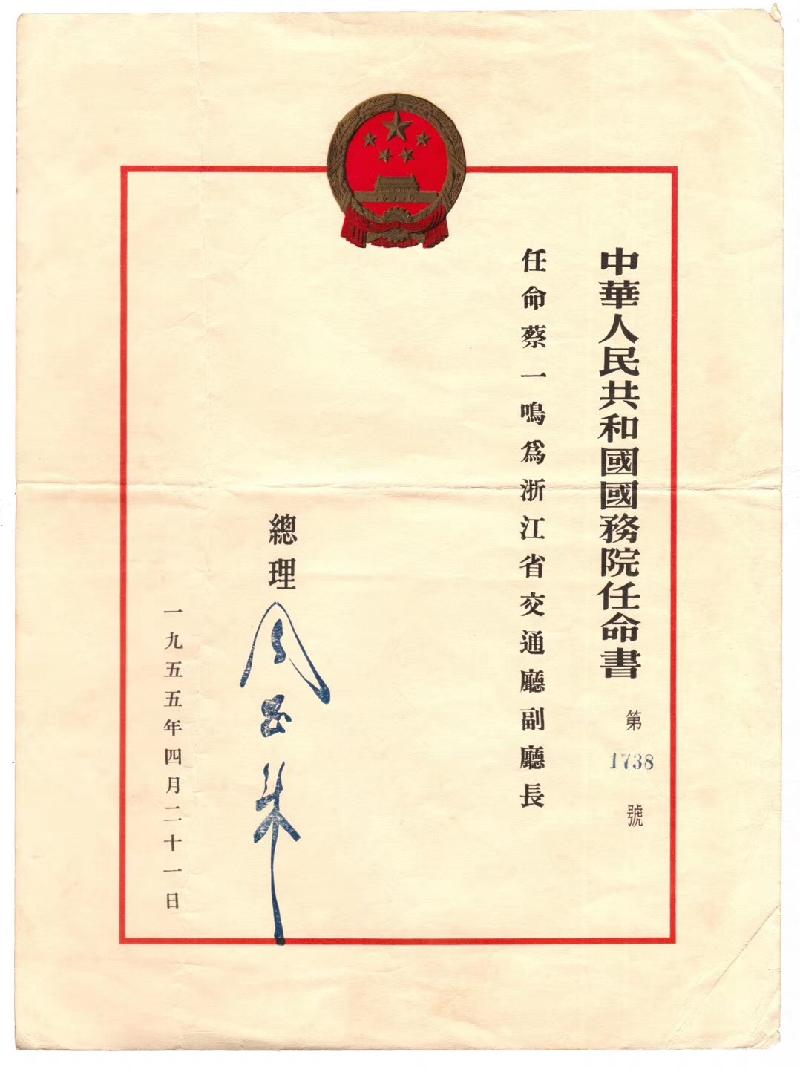 中華人民共和國國務院任命書
第
1738
號
任命蔡一鳴爲浙江省交通廳副廳長
總理
周恩来
一九五五年四月二十一日